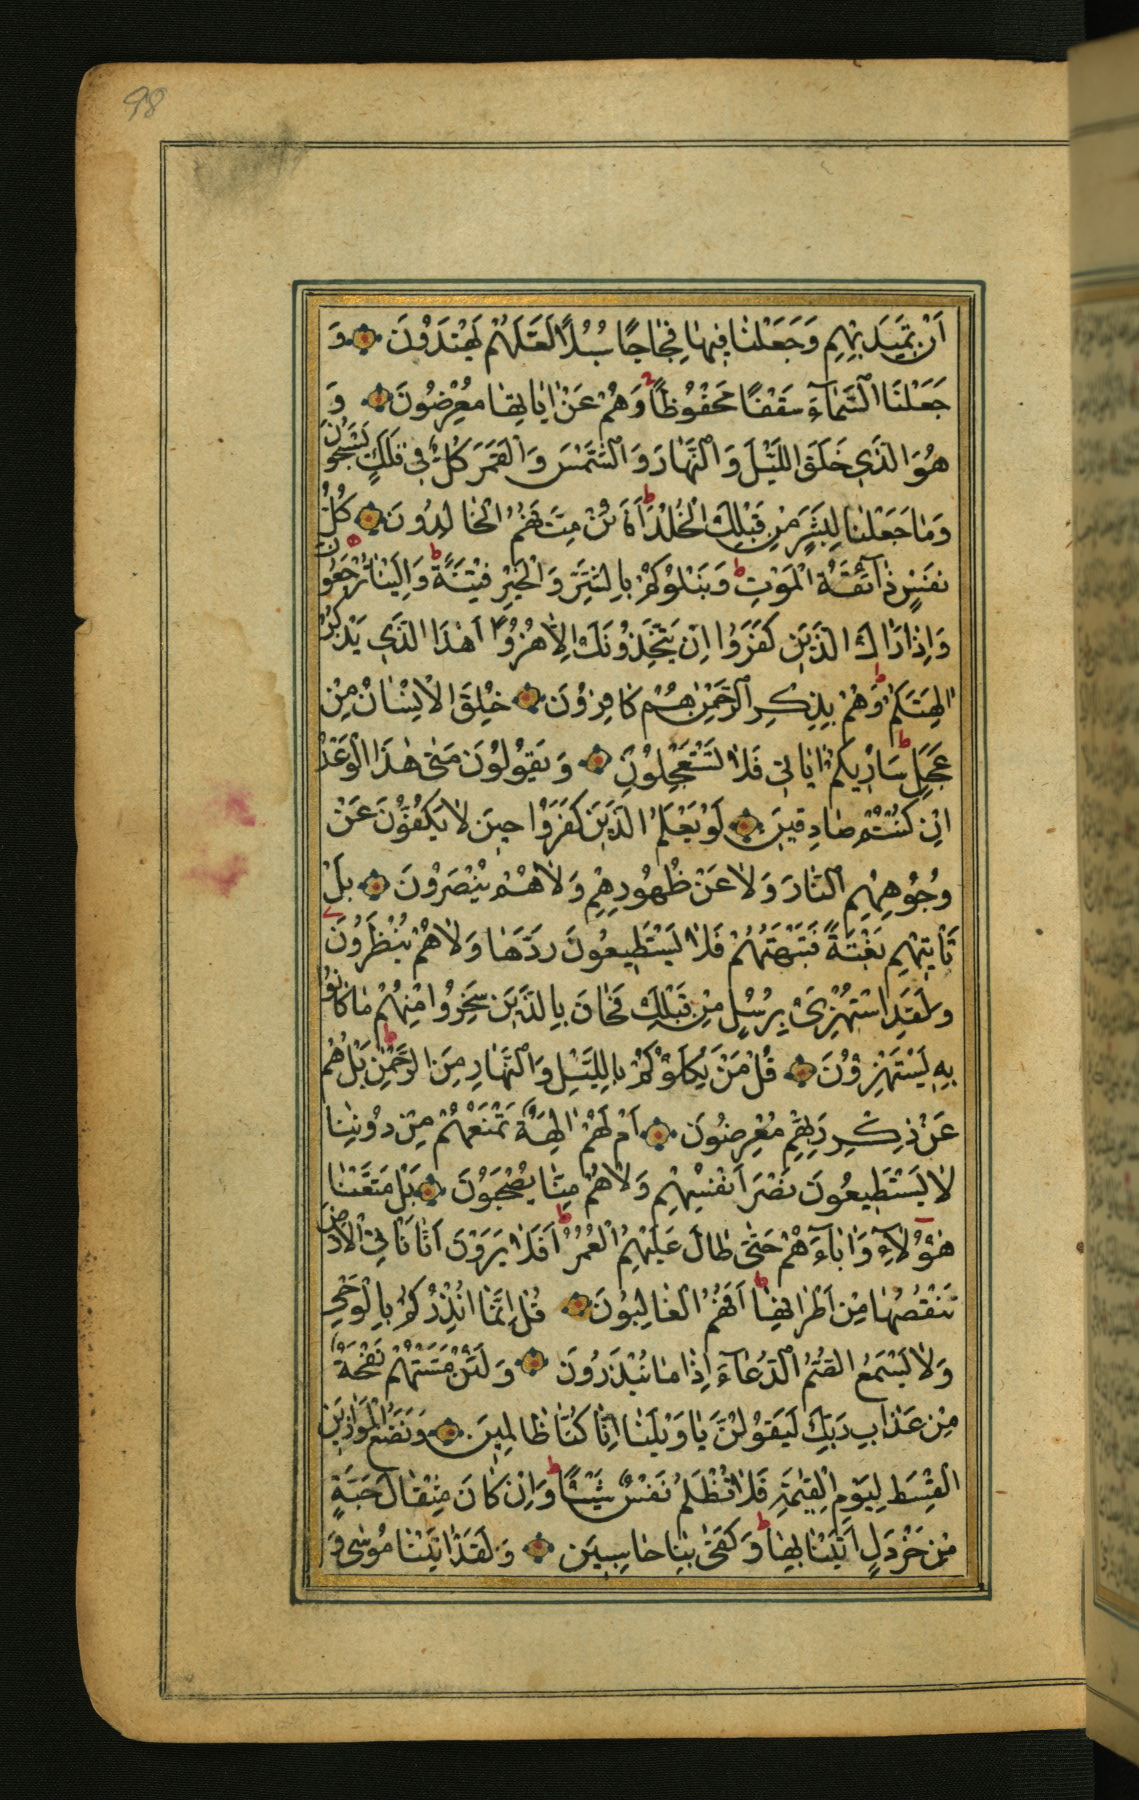 98
اَنْ تَمِيدَ بِهِمِ وَجَعَلْنَا فِيهَا فِجَاجًا سُبُلًا لَعَلَّهُمْ يَهْتَدُونَ وَ
جَعَلْنَا السَّمَآءَ سَقْفًا مَحْفُوظًا وَهُمْ عَنْ اٰيَاتِهَا مُعْرِضُونَ وَ
هُوَ الَّذِي خَلَقَ اللَّيْلَ وَالنَّهَارَ وَالشَّمْسَ وَالْقَمَرَ كُلٌّ فِي فَلَكٍ يَسْبَحُونَ
وَمَا جَعَلْنَا لِبَشَرٍ مِنْ قَبْلِكَ الْخُلْدَ اَفَائِنْ مِتَّ فَهُمُ الْخَالِدُونَ كُلُّ
نَفْسٍ ذَآئِقَةُ الْمَوْتِ وَنَبْلُوكُمْ بِالشَّرِّ وَالْخَيْرِ فِتْنَةً وَاِلَيْنَا تُرْجَعُونَ
وَاِذَا رَاٰكَ الَّذِينَ كَفَرُوا اِنْ يَتَّخِذُونَكَ اِلَّا هُزُوًا اَهٰذَا الَّذِي يَذْكُرُ
اٰلِهَتَكُمْ وَهُمْ بِذِكْرِ الرَّحْمٰنِ هُمْ كَافِرُونَ خُلِقَ الْاِنْسَانُ مِنْ
عَجَلٍ سَاُرِيكُمْ اٰيَاتِي فَلَا تَسْتَعْجِلُونِ وَيَقُولُونَ مَتٰى هٰذَا الْوَعْدُ
اِنْ كُنْتُمْ صَادِقِينَ لَوْ يَعْلَمُ الَّذِينَ كَفَرُوا حِينَ لَا يَكُفُّونَ عَنْ
وُجُوهِهِمِ النَّارَ وَلَا عَنْ ظُهُورِهِمِ وَلَا هُمْ يُنْصَرُونَ بَلْ
تَاْتِيهِمِ بَغْتَةً فَتَبْهَتُهُمْ فَلَا يَسْتَطِيعُونَ رَدَّهَا وَلَا هُمْ يُنْظَرُونَ
وَلَقَدِ اسْتُهْزِئَ بِرُسُلٍ مِنْ قَبْلِكَ فَحَاقَ بِالَّذِينَ سَخِرُوا مِنْهُمْ مَا كَانُوا
بِهِ يَسْتَهْزِؤُنَ قُلْ مَنْ يَكْلَؤُكُمْ بِاللَّيْلِ وَالنَّهَارِ مِنَ الرَّحْمٰنِ بَلْ هُمْ
عَنْ ذِكْرِ رَبِّهِمِ مُعْرِضُونَ اَمْ لَهُمْ اٰلِهَةٌ تَمْنَعُهُمْ مِنْ دُونِنَا
لَا يَسْتَطِيعُونَ نَصْرَ اَنْفُسِهِمِ وَلَا هُمْ مِنَّا يُصْحَبُونَ بَلْ مَتَّعْنَا
هٰؤُلَآءِ وَاٰبَآءَهُمْ حَتّٰى طَالَ عَلَيْهِمُ الْعُمُرُ اَفَلَا يَرَوْنَ اَنَّا نَاْتِي الْاَرْضَ
نَنْقُصُهَا مِنْ اَطْرَافِهَا اَفَهُمُ الْغَالِبُونَ قُلْ اِنَّمَا اُنْذِرُكُمْ بِالْوَحْيِ
وَلَا يَسْمَعُ الصُّمُّ الدُّعَآءَ اِذَا مَا يُنْذَرُونَ وَلَئِنْ مَسَّتْهُمْ نَفْحَةٌ
مِنْ عَذَابِ رَبِّكَ لَيَقُولُنَّ يَا وَيْلَنَا اِنَّا كُنَّا ظَالِمِينَ وَنَضَعُ الْمَوَازِينَ
الْقِسْطَ لِيَوْمِ الْقِيٰمَةِ فَلَا تُظْلَمُ نَفْسٌ شَيْئًا وَاِنْ كَانَ مِثْقَالَ حَبَّةٍ
مِنْ خَرْدَلٍ اَتَيْنَا بِهَا وَكَفٰى بِنَا حَاسِبِينَ وَلَقَدْ اٰتَيْنَا مُوسٰى وَ